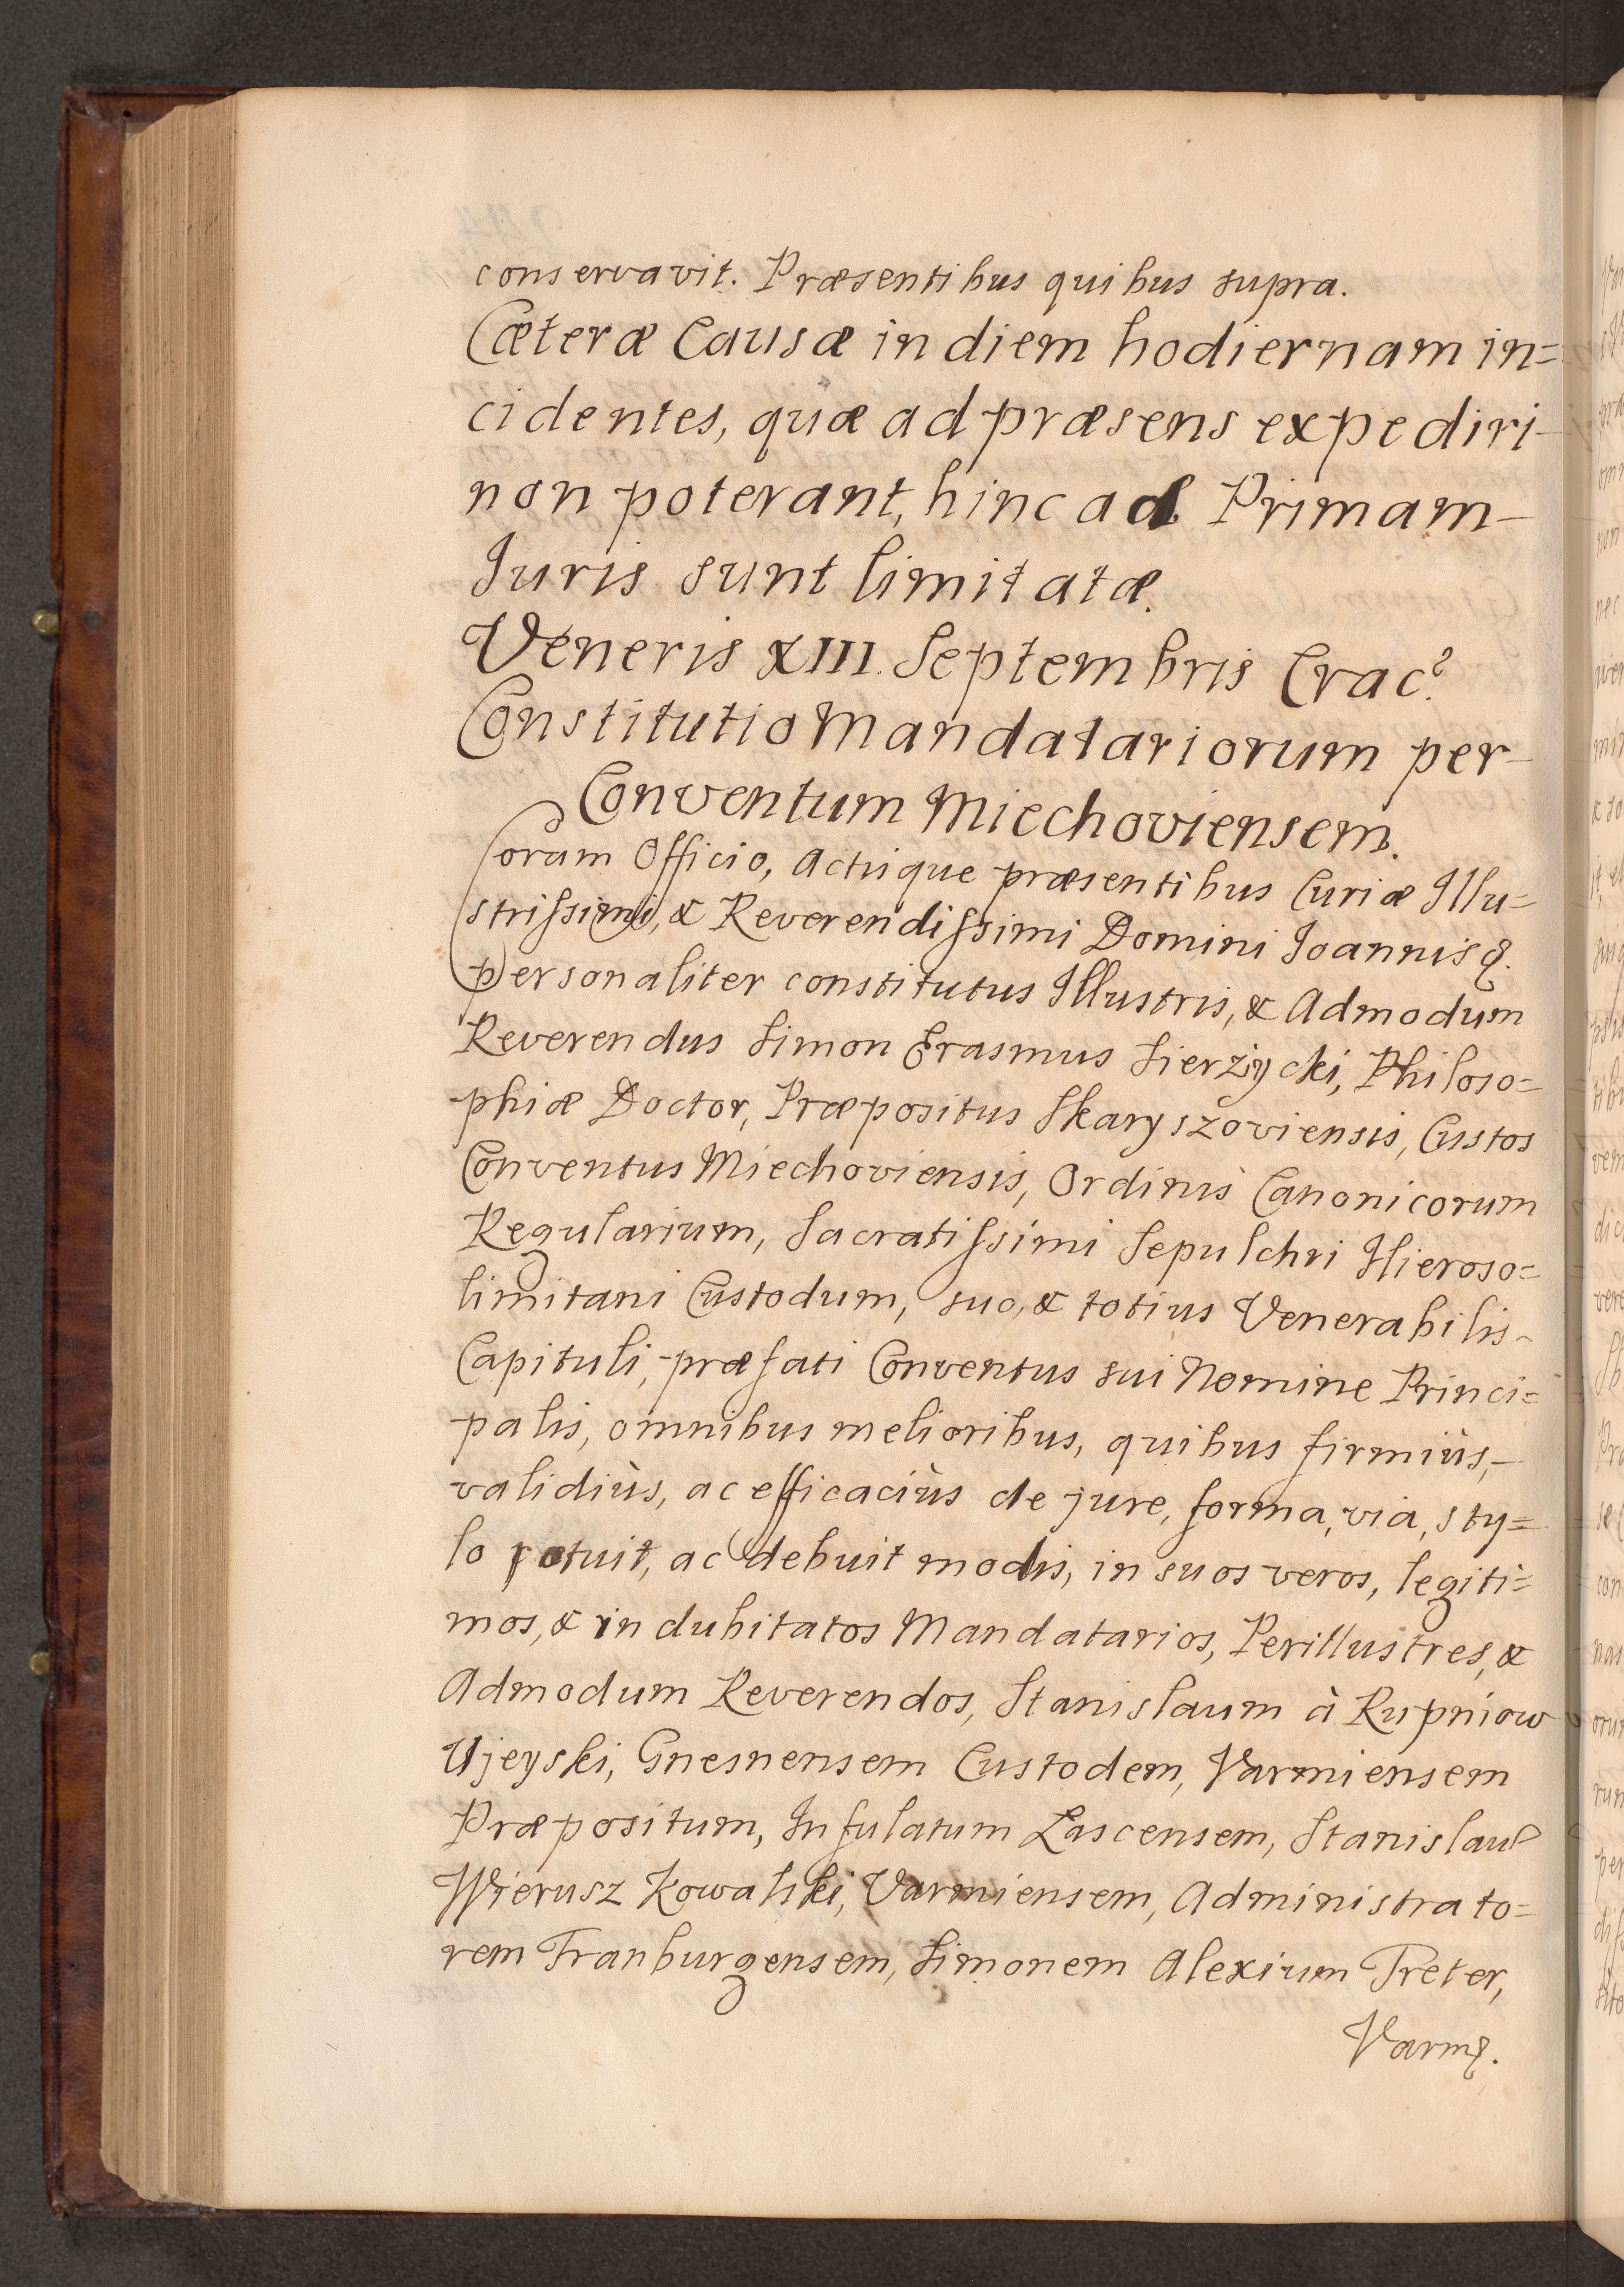 conservavit. Præsentibus quibus supra.
Cæteræ Causæ in diem hodiernam in=
cidentes, quæ ad præsens expediri
non poterant, hinc ad Primam
Juris sunt limitatæ.
Veneris XIII. Septembris Crac?
Constitutio Mandatariorum per
Conventum Miechoviensem.
Coram Officio, Actisque præsentibus Curiæ Illu=
strissimi, & Reverendissimi Domini Joannis &.
personaliter constitutus Illustris, & Admodum
Reverendus Simon Erasmus Sierżycki, Philoso=
phiæ Doctor, Præpositus Skaryszoviensis, Custos
Conventus Miechoviensis, Ordinis Canonicorum
Regularium, Sacratissimi Sepulchri Hieroso=
limitani Custodum, suo, & totius Venerabilis
Capituli, præfati Conventus sui Nomine Princi=
palis, omnibus melioribus, quibus firmiùs,
validiùs, ac efficaciùs de jure, forma, via, sty=
lo potuit, ac debuit modis, in suos veros, legiti=
mos, & indubitatos Mandatarios, Perillustres, &
Admodum Reverendos, Stanislaum à Rupniow
Ujeyski, Gnesnensem Custodem, Varmiensem
Præpositum, Infulatum Lascensem, Stanislaum
Wierusz Kowalski, Varmiensem, Administrato=
rem Franburgensem, Simonem Alexium Treter,
Varm&.